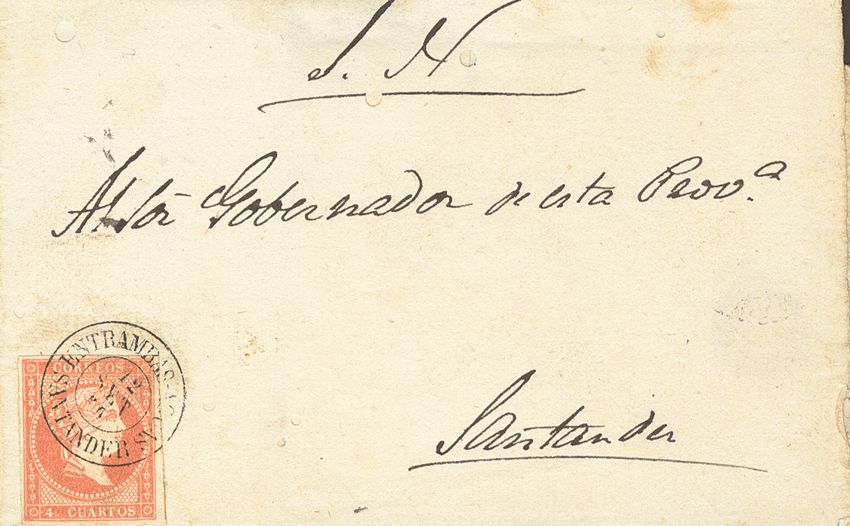 S. N
Al Sór Gobernador de esta Prov.ª
Santander
ENTRAMBAS-AGUAS
SANTANDER
12
SET
CORREOS
4 CUARTOS